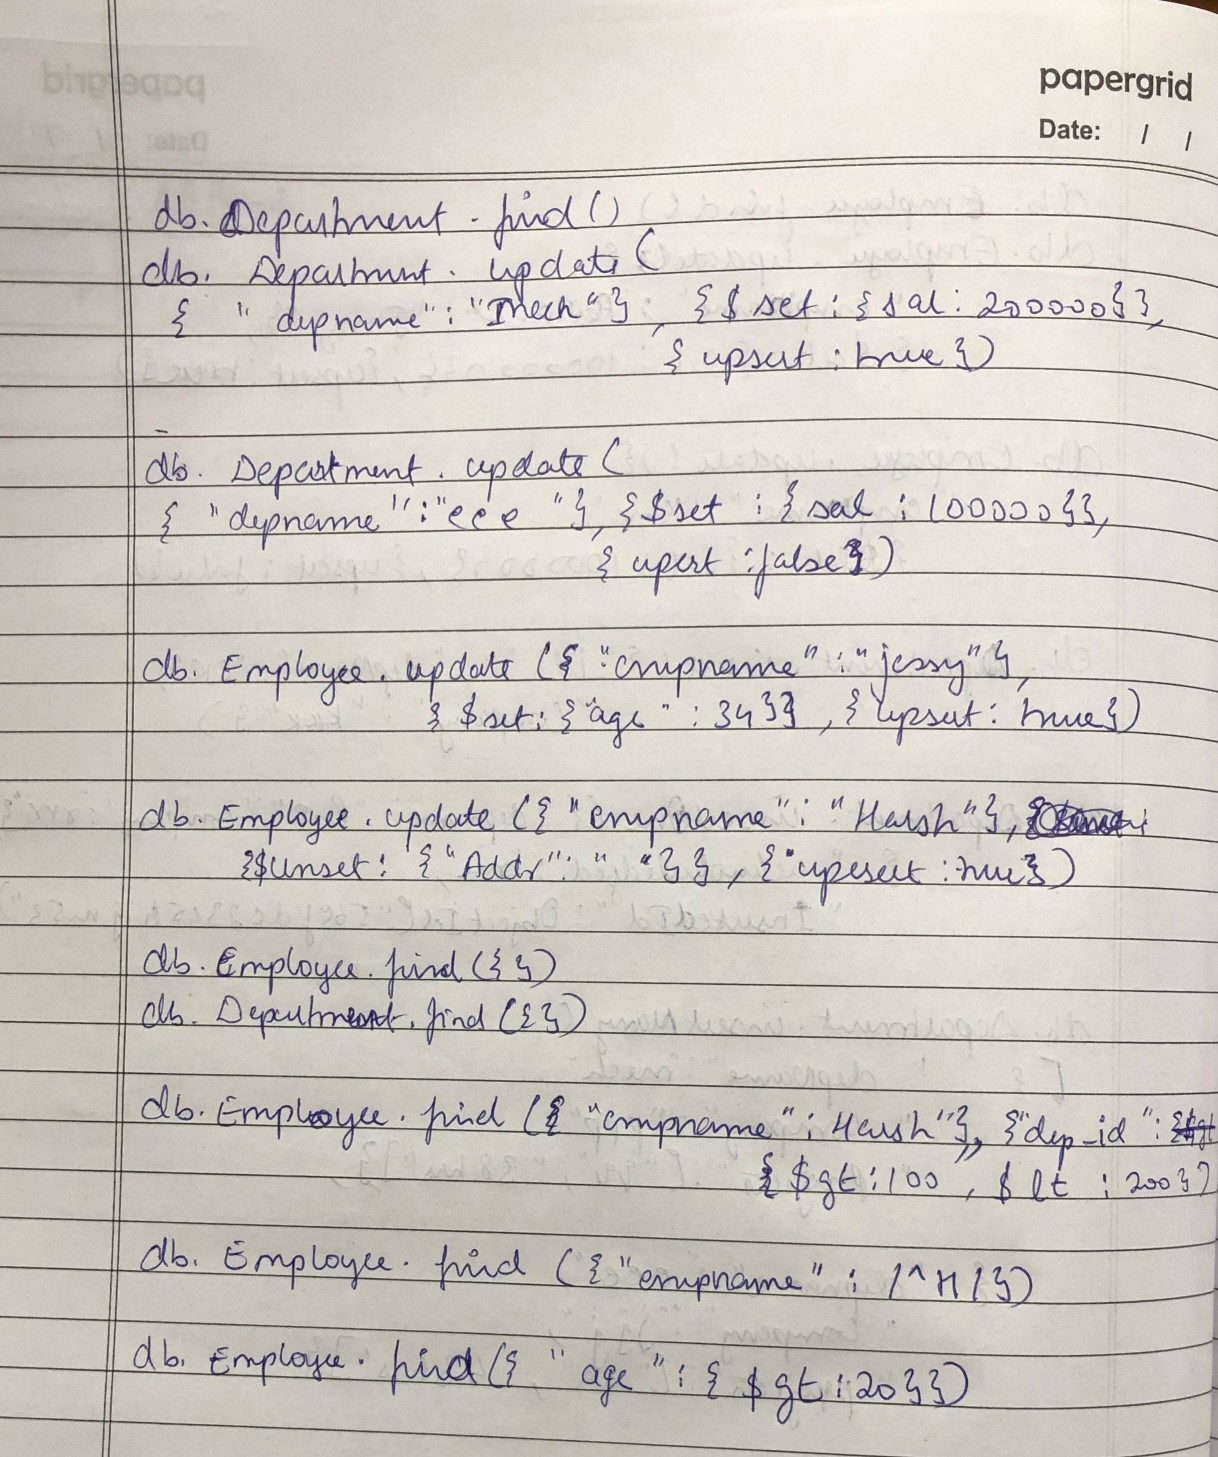 papergrid
Date: / /
db. Department . find ()
db. Department . update (
{ " depname" : "Mech" } , {$ set : { sal : 200000}},
{ upsert : true })
db. Department . update (
{ "depname" : "eee "}, {$set : { sal : 100000}},
{ upert : false })
db. Employee . update ({ "empname" : "jessy" },
{ $set : {"age" : 34}} , { upsert : true})
db. Employee . update ({ "empname" : "Harsh"},
{$unset : { "Addr" : " "}} , {"upesert : true})
db. Employee . find ({ })
db. Department . find ({})
db. Employee . find ({ "empname" : Harsh"}, {"dep_id" :
{ $gt : 100 , $ lt : 200})
db. Employee . find ({ "empname" : /^H/})
db. Employee . find ({ " age " : { $ gt : 20 }})